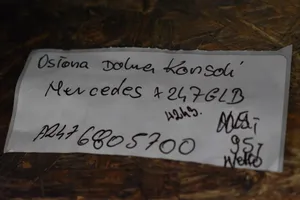 Osłona Dolna Konsoli
Mercedes X247GLB
A2476805700
95,-
netto